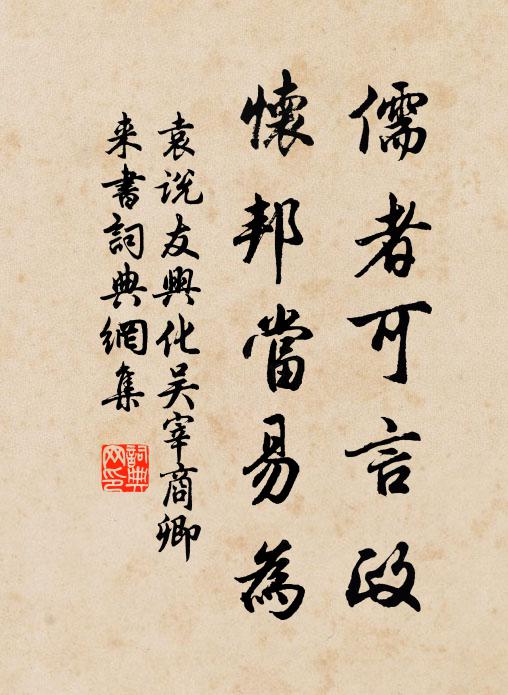 儒者可言政
懷邦當易為
袁說友興化吴宰商卿
来書詞典網集
詞典网印